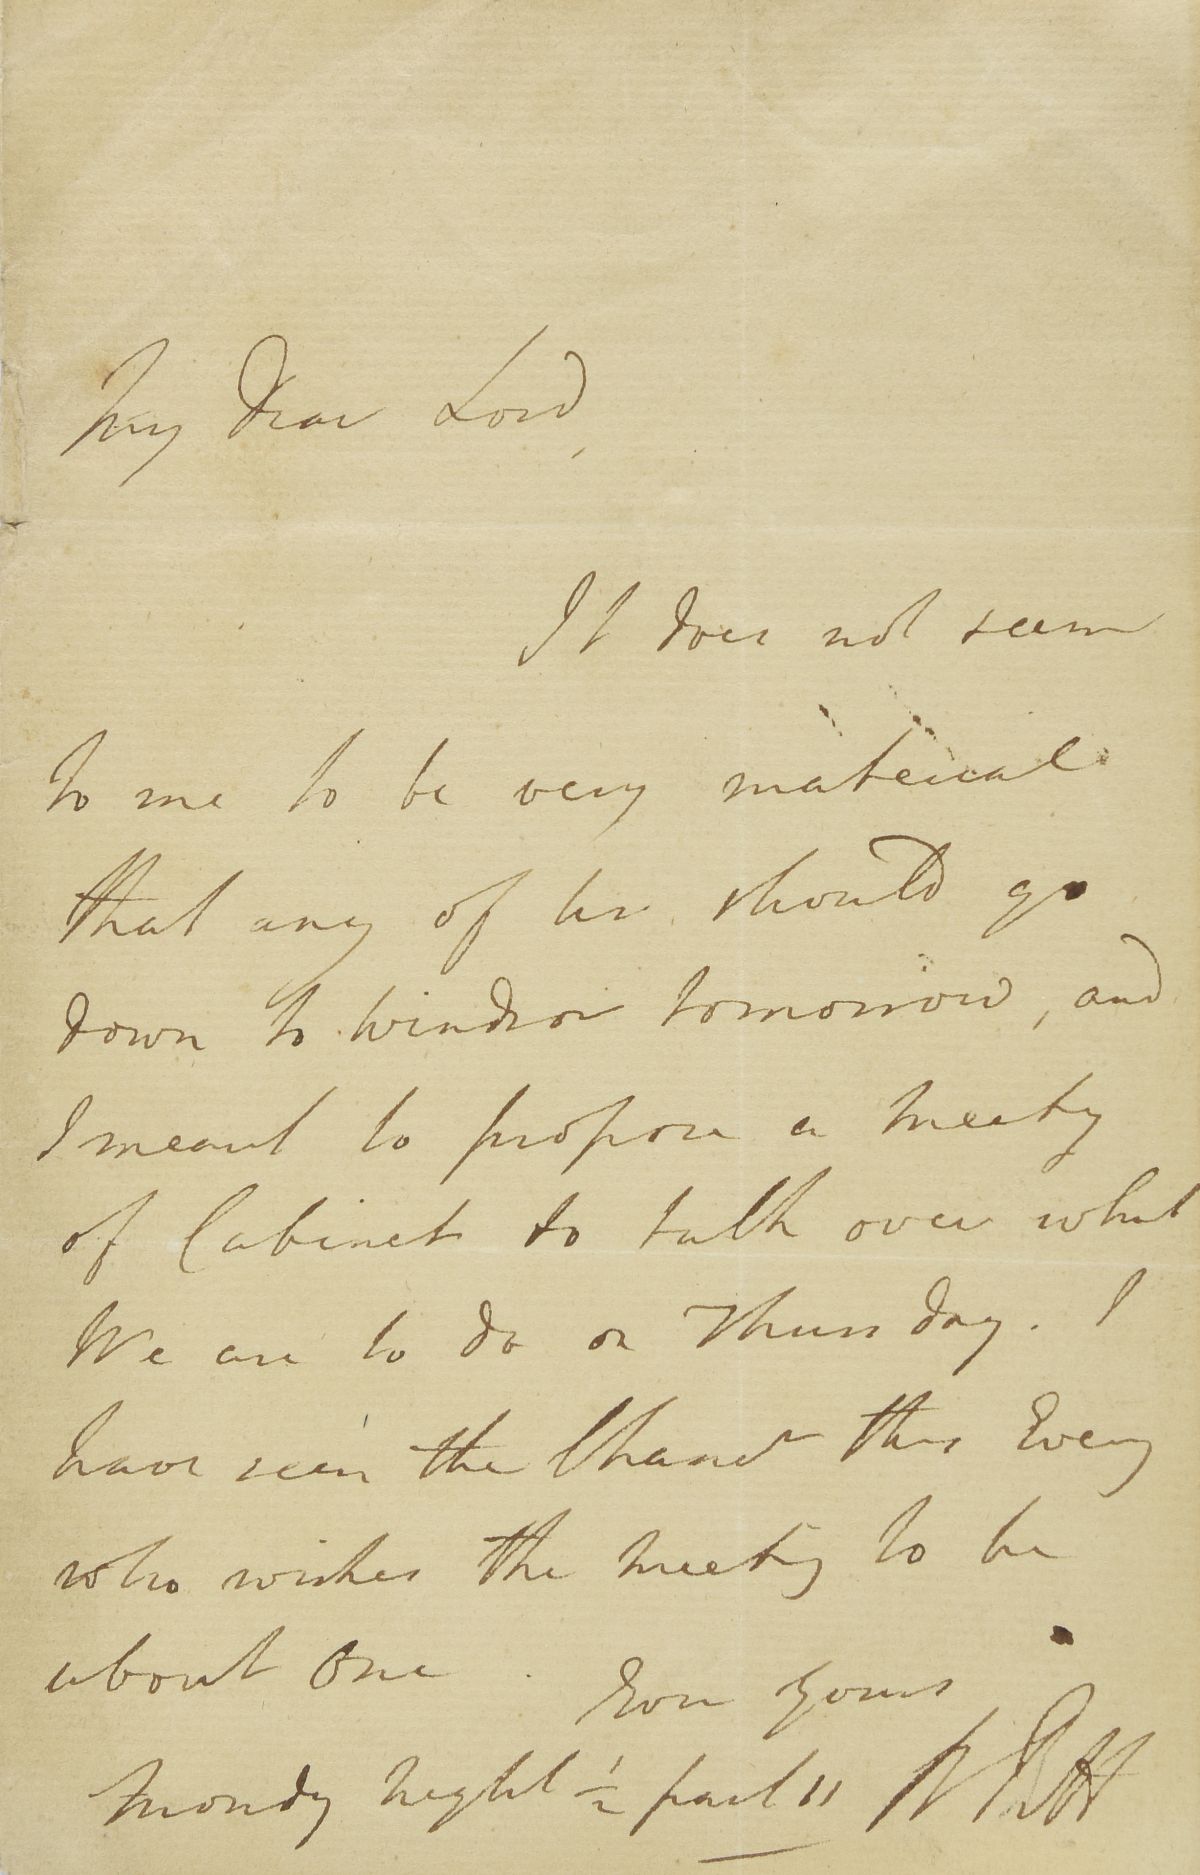 My dear Lord,
It does not seem
to me to be very material
that any of us should go
down to Windsor tomorrow, and
I meant to propose a meetg
of Cabinet to talk over what
We are to do on Thursday. I
have seen the Chanr this Eveng
who wishes the meetg to be
about One.
Ever yours
Mondy night ½ past 11 W Pitt